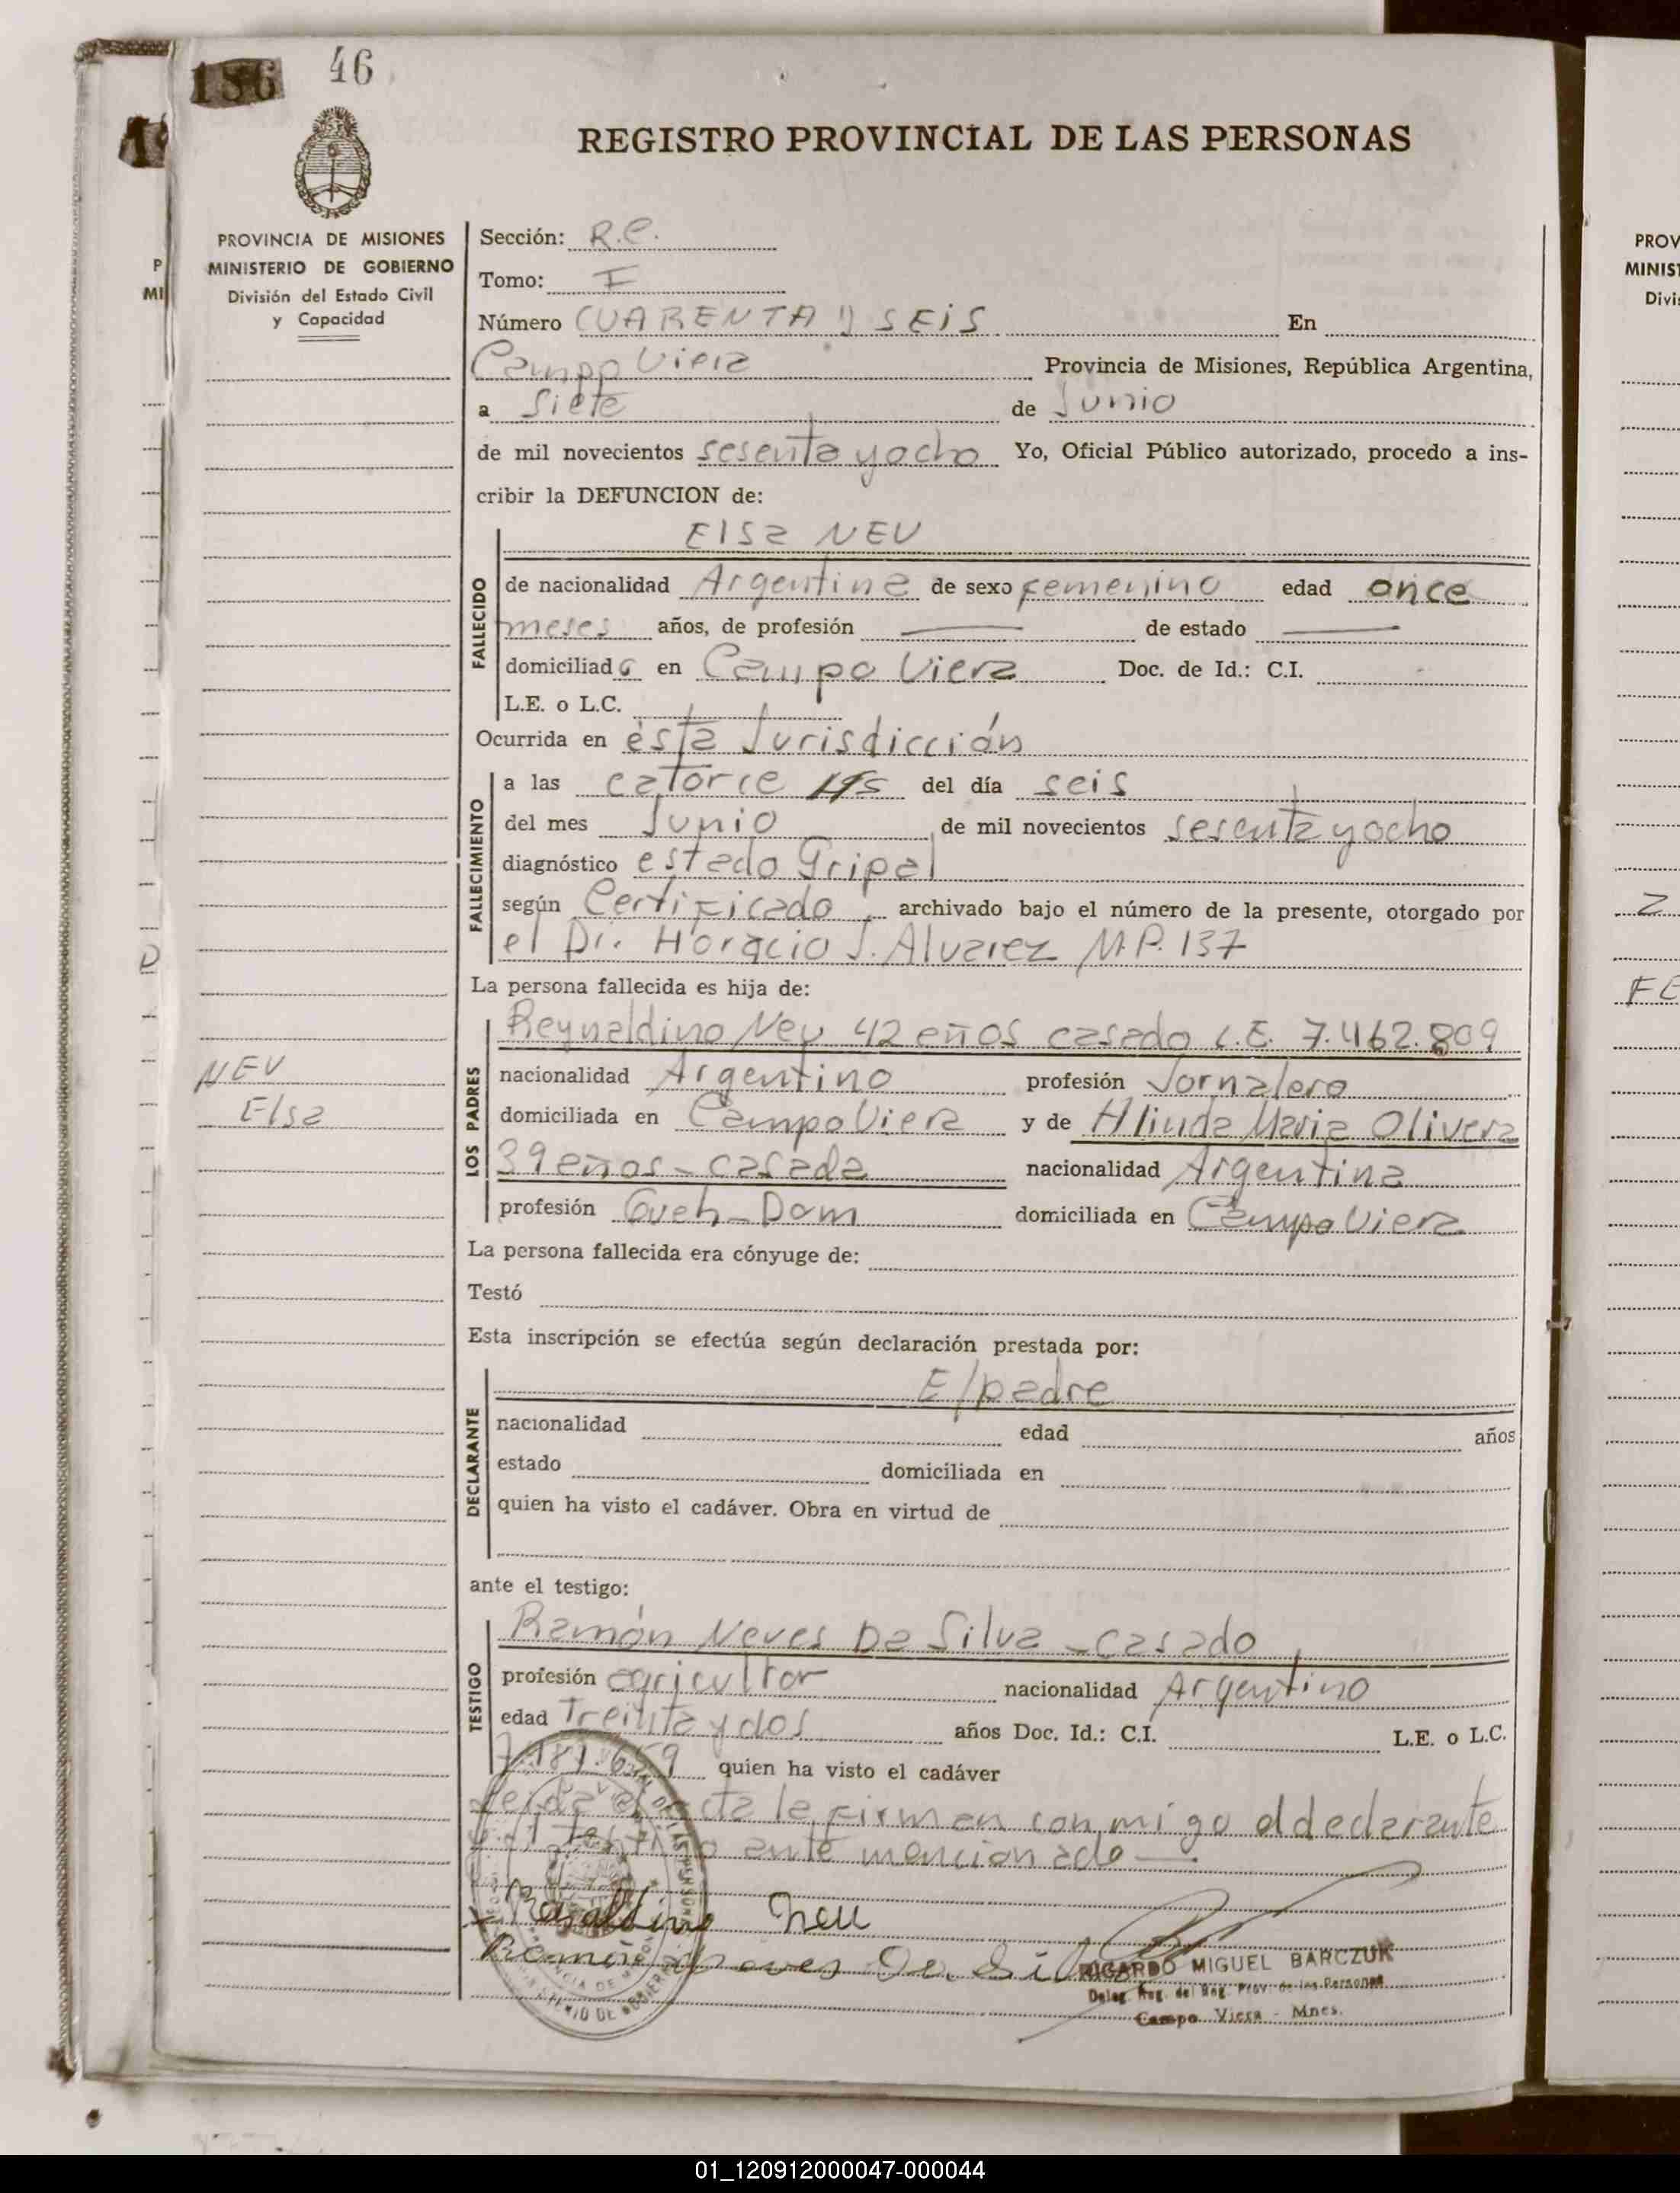 186 46
REGISTRO PROVINCIAL DE LAS PERSONAS
PROVINCIA DE MISIONES
MINISTERIO DE GOBIERNO
División del Estado Civil
y Capacidad
Sección: R.C.
Tomo: I
Número CUARENTA y SEIS En
Campo Viera Provincia de Misiones, República Argentina,
a Siete de Junio
de mil novecientos sesenta y ocho Yo, Oficial Público autorizado, procedo a ins-
cribir la DEFUNCION de:
Elsa NEU
FALLECIDO
de nacionalidad Argentina de sexo femenino edad once
meses años, de profesión — de estado —
domiciliada en Campo Viera Doc. de Id.: C.I.
L.E. o L.C.
Ocurrida en ésta Jurisdicción
FALLECIMIENTO
a las catorce Hs del día seis
del mes Junio de mil novecientos sesenta y ocho
diagnóstico estado Gripal
según Certificado archivado bajo el número de la presente, otorgado por
el Dr. Horacio J. Alvarez M.P. 137
La persona fallecida es hija de:
LOS PADRES
Reynaldino Neu 42 años casado L.E. 7.462.809
nacionalidad Argentino profesión Jornalero
domiciliada en Campo Viera y de Alinda Maria Olivera
39 años - casada nacionalidad Argentina
profesión Queh-Dom domiciliada en Campo Viera
NEU
Elsa
La persona fallecida era cónyuge de:
Testó
Esta inscripción se efectúa según declaración prestada por:
DECLARANTE
El padre
nacionalidad edad años
estado domiciliada en
quien ha visto el cadáver. Obra en virtud de
ante el testigo:
TESTIGO
Ramón Neves Da Silva - casado
profesión agricultor nacionalidad Argentino
edad Treinta y dos años Doc. Id.: C.I. L.E. o L.C.
quien ha visto el cadáver
Leída el acta la firman conmigo el declarante
y el testigo ante mencionado —
Neu
Ramón Neves Da Silva
RICARDO MIGUEL BARCZUK
Deleg. Reg. del Reg. Prov. de las Personas
Campo Viera - Mnes.
01_120912000047-000044